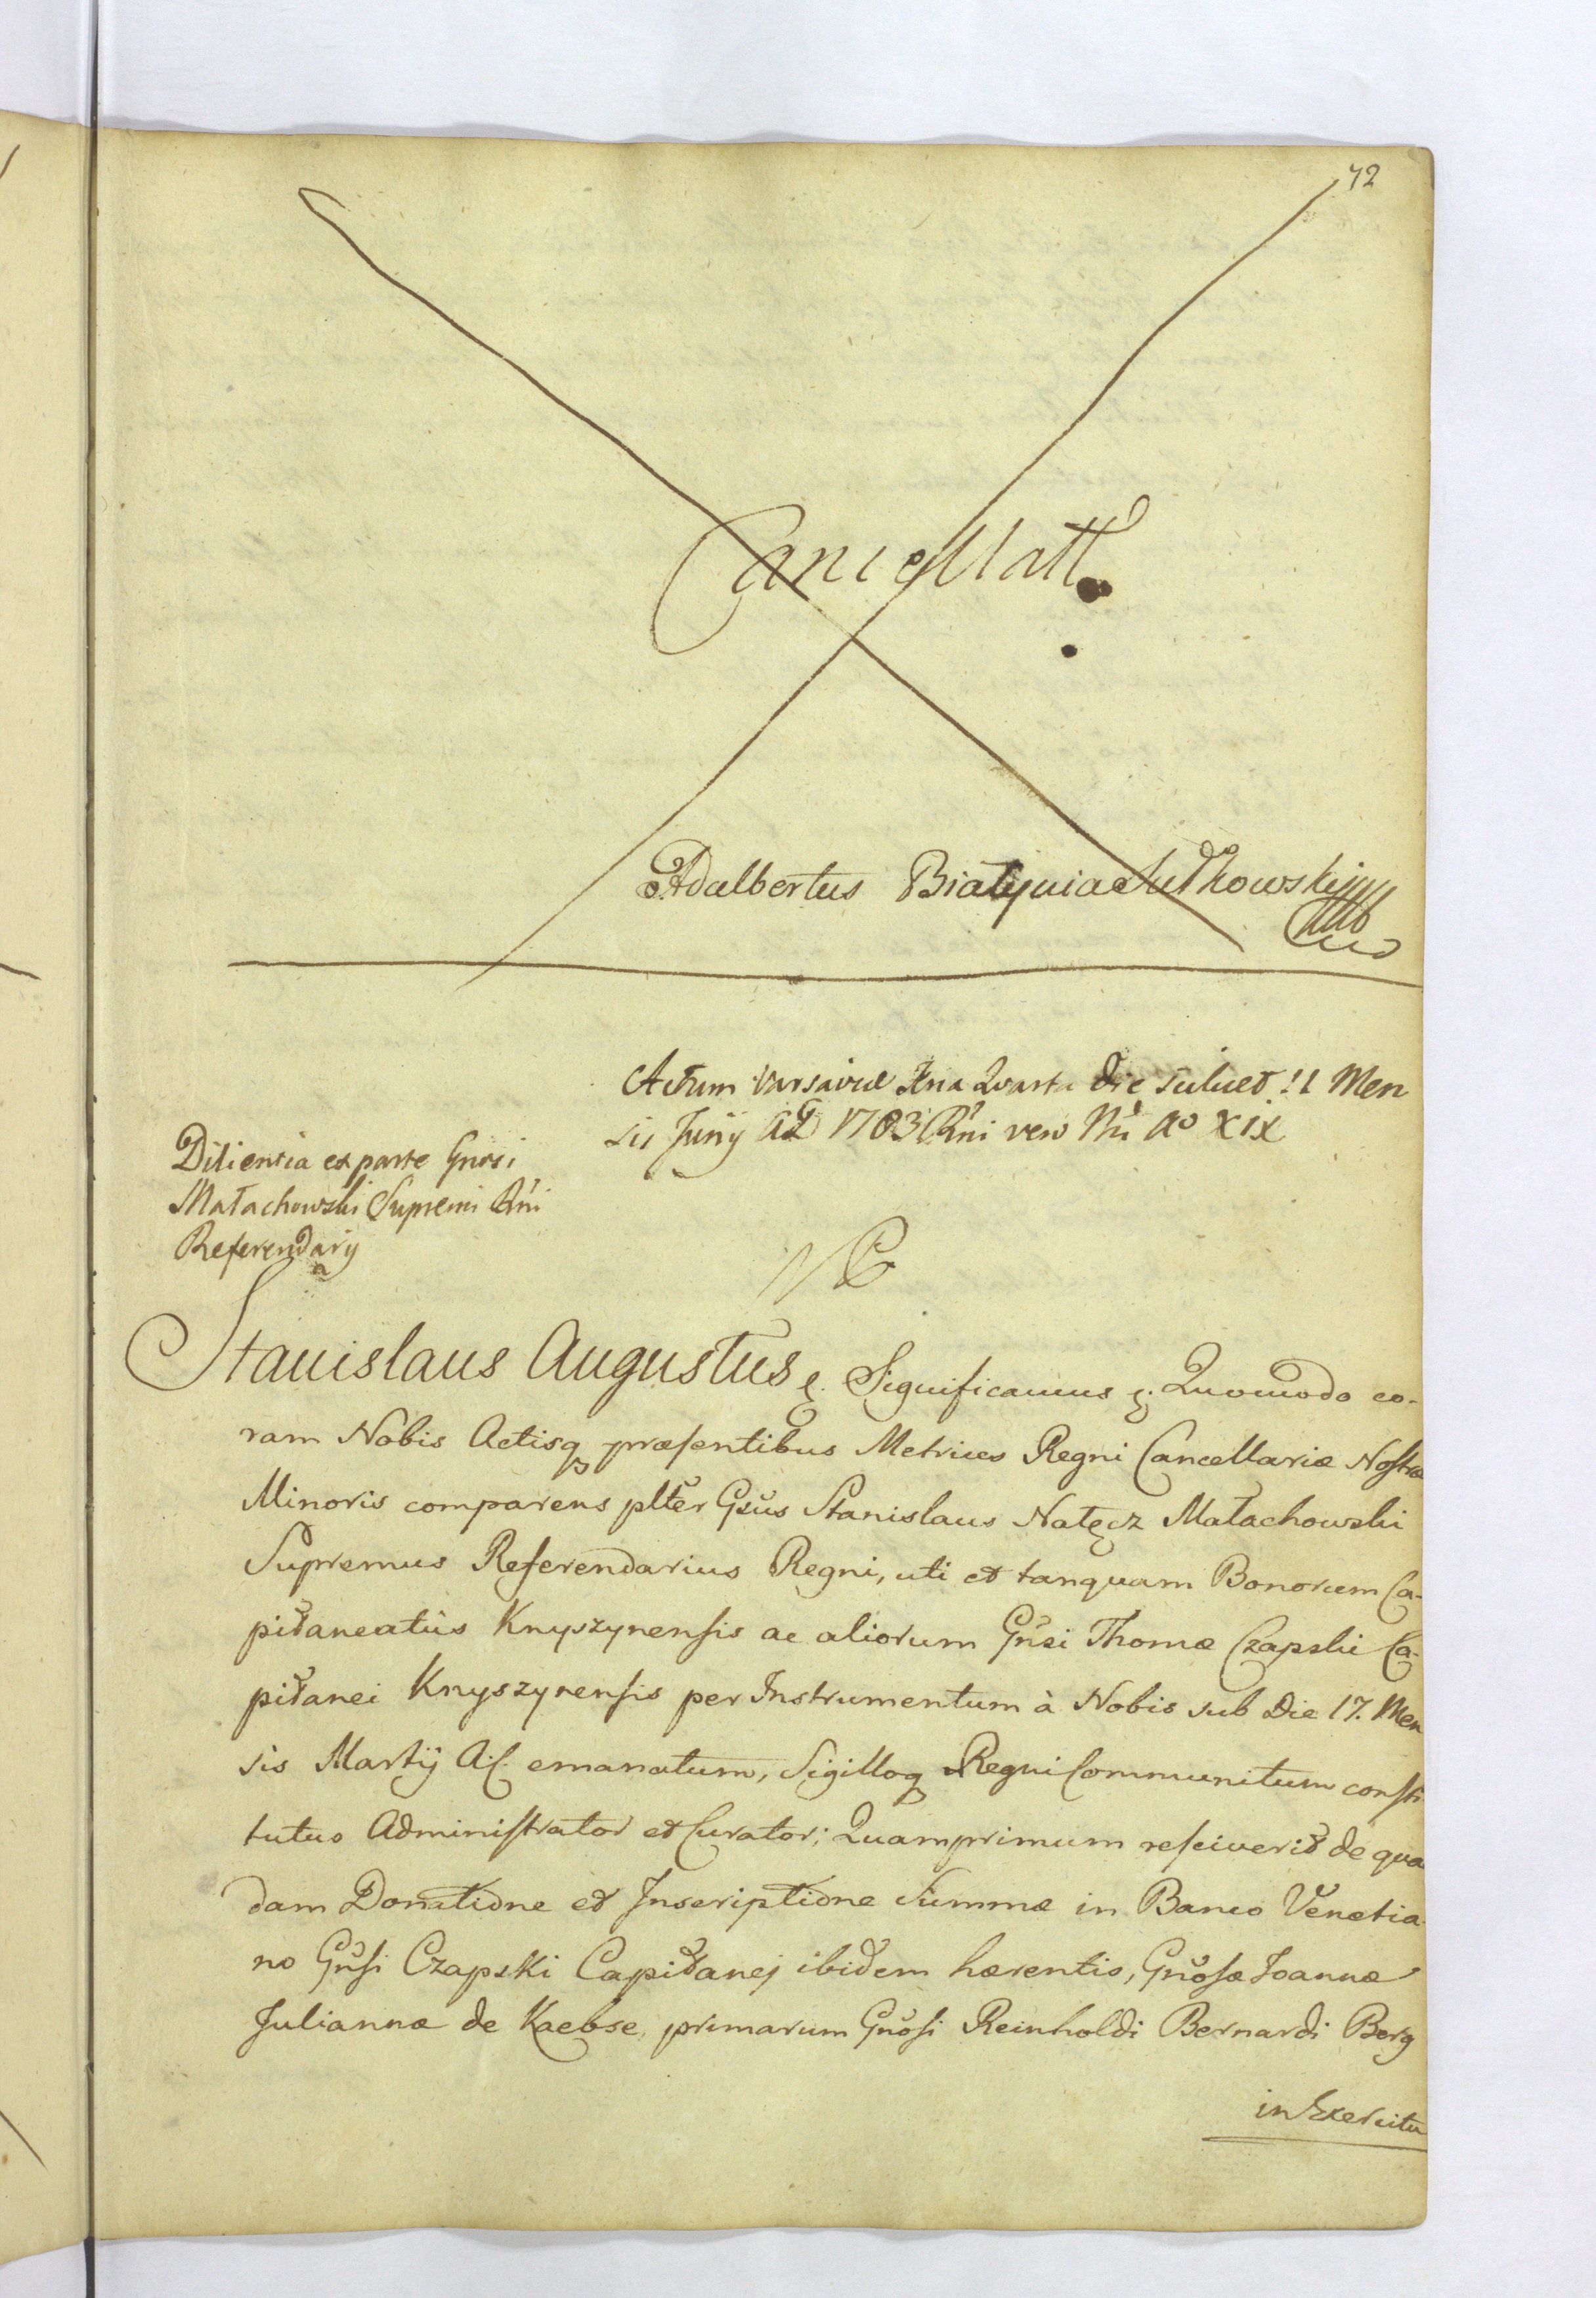 72
Cancellatt
Adalbertus Białyniac Sutkowski
Actum Varsaviæ Fria Quarta die scilicet 11 Men
sis Junij AD 1783 Rni vero Nri Ao XIX
Diliensia ex parte Gnosi
Małachowski Supremi Rni
Referendarij
Stanislaus Augustus &. Significamus &. Quomodo co-
ram Nobis Actisq præsentibus Metrices Regni Cancellariæ Nostræ
Minoris comparens plter Gsus Stanislaus Nałęcz Małachowski
Supremus Referendarius Regni, uti et tanquam Bonorum Ca-
pitaneatûs Knyszynensis ac aliorum Gnsi Thomæ Czapski Ca-
pitanei Knyszynensis per Instrumentum à Nobis sub Die 17. Men
sis Martij A.C. emanatum, Sigilloq Regni Communitum consti
tutus Administrator et Curator; Quamprimum resciverit de qua
dam Donatione et Inscriptione Summæ in Banco Venetia-
no Gnsi Czapski Capitanej ibidem hærentis, Gnosæ Joannæ
Juliannæ de Kaebse primarum Gnosi Reinholdi Bernardi Berg
in Exercitu